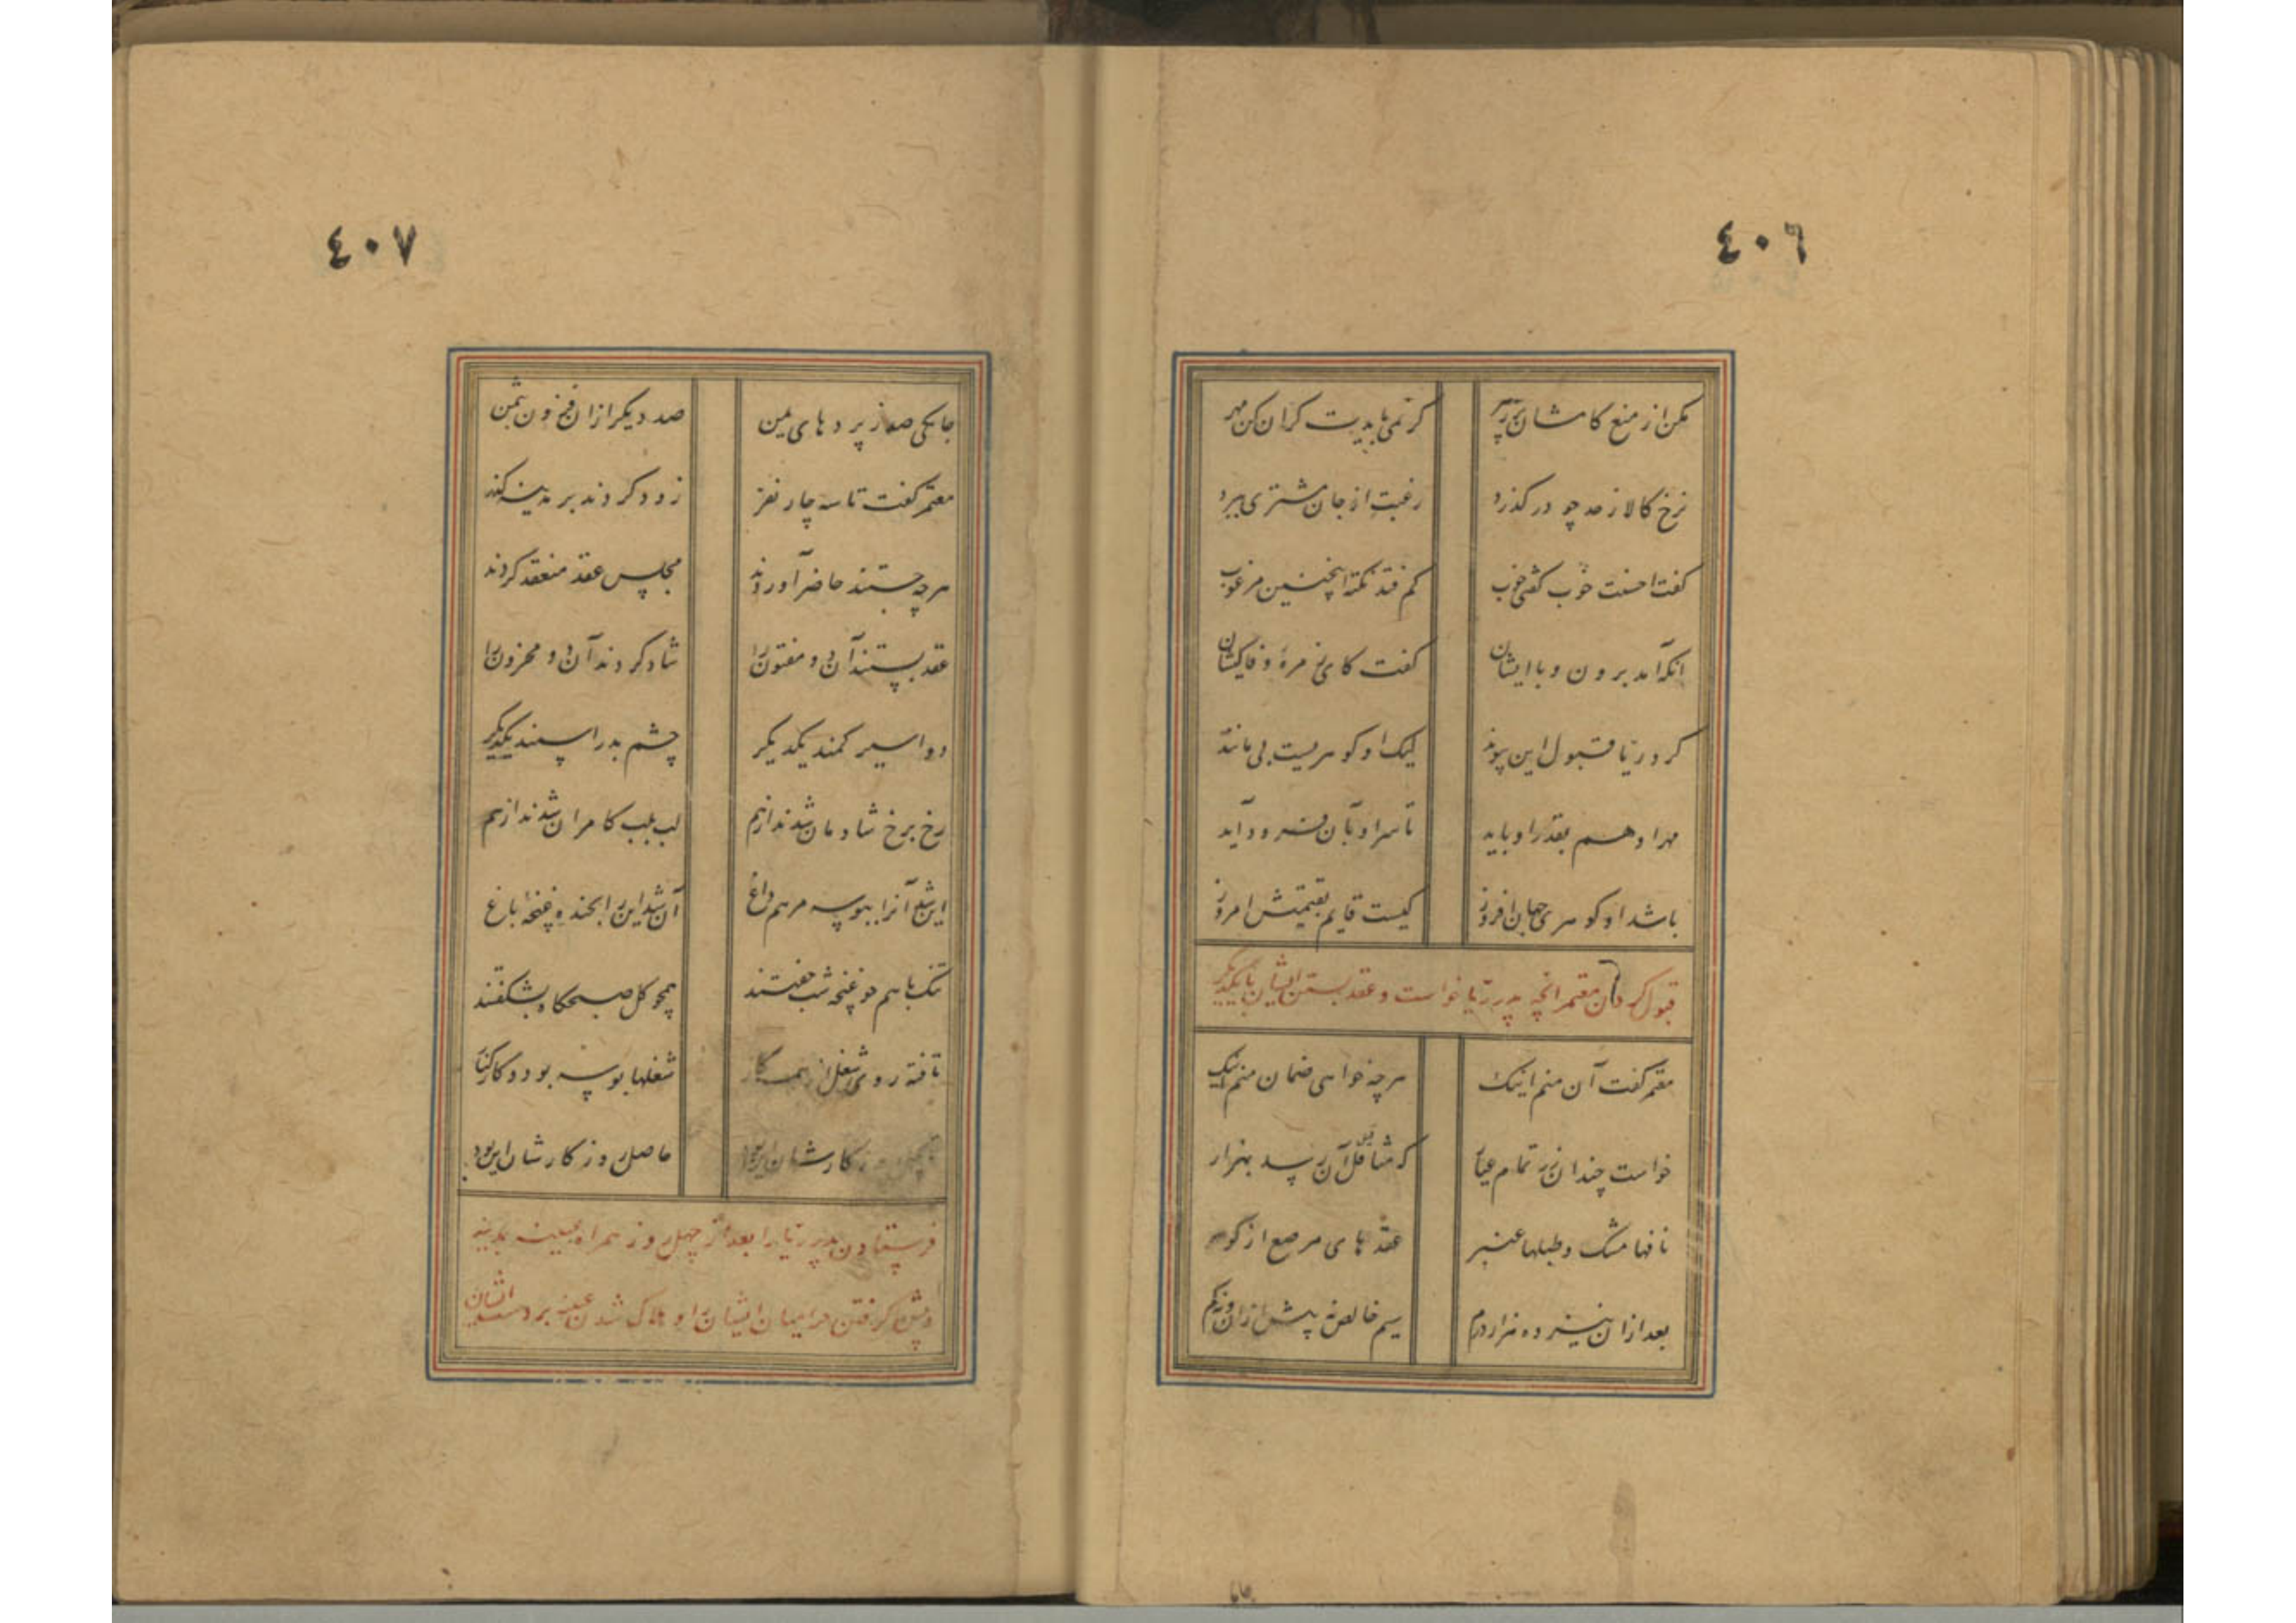 ٤٠٦
مکن از منع کامشان پر زهر گر نمی بایدت گران کن مهر
نرخ کالا ز حد چو در گذرد رغبت از جان مشتری ببرد
گفت احسنت خوب گفتی خوب کم فتد نکته اینچنین مرغوب
آنگه آمد برون و با ایشان گفت کای زمرهٔ وفاکیشان
کرد ریا قبول این پیوند لیک او گوهریست بی مانند
مهر او هم بقدر او باید تا سر او بآن فرود آید
باشد او گوهری جهان افروز کیست قایم بقیمتش امروز
قبول کردن معتمر آنچه پدر ریا خواست و عقد بستن ایشان با یکدیگر
معتمر گفت آن منم اینک هر چه خواهی ضمان منم اینک
خواست چندان زر تمام عیار که مثاقیل آن رسد بهزار
نافها مشک و طبلها عنبر عقد های مرصع از گوهر
بعد ازان نیز ده هزار درم سیم خالص نه بیش ازان و نه کم
٤٠٧
جامگی صد ز برد های یمن صد دیگر ازان فزون بثمن
معتمر گفت تا سه چار نفر زود کردند بر مدینه گذر
هر چه جستند حاضر آوردند مجلس عقد منعقد کردند
عقد بستند آن دو مفتون را شاد کردند آن دو محزون را
دو اسیر کمند یکدیگر چشم بد را سپند یکدیگر
رخ برخ شادمان شدند از هم لب بلب کامران شدند از هم
این شد آنرا ببوسه مرهم داغ آن شد این را بخنده غنچهٔ باغ
تنگ با هم دو غنچه شب خفتند همچو گل صبحگاه بشکفتند
تافته روی شغل از همه کار شغلها بوسه بود و کار کنار
تا چهل روز کارشان این بود حاصل روزگارشان این بود
فرستادن پدر ریا را بعد از چهل روز همراه عیینه بمدینه
و پیش گرفتن حرامیان ایشان را و هلاک شدن عیینه بر دست ایشان